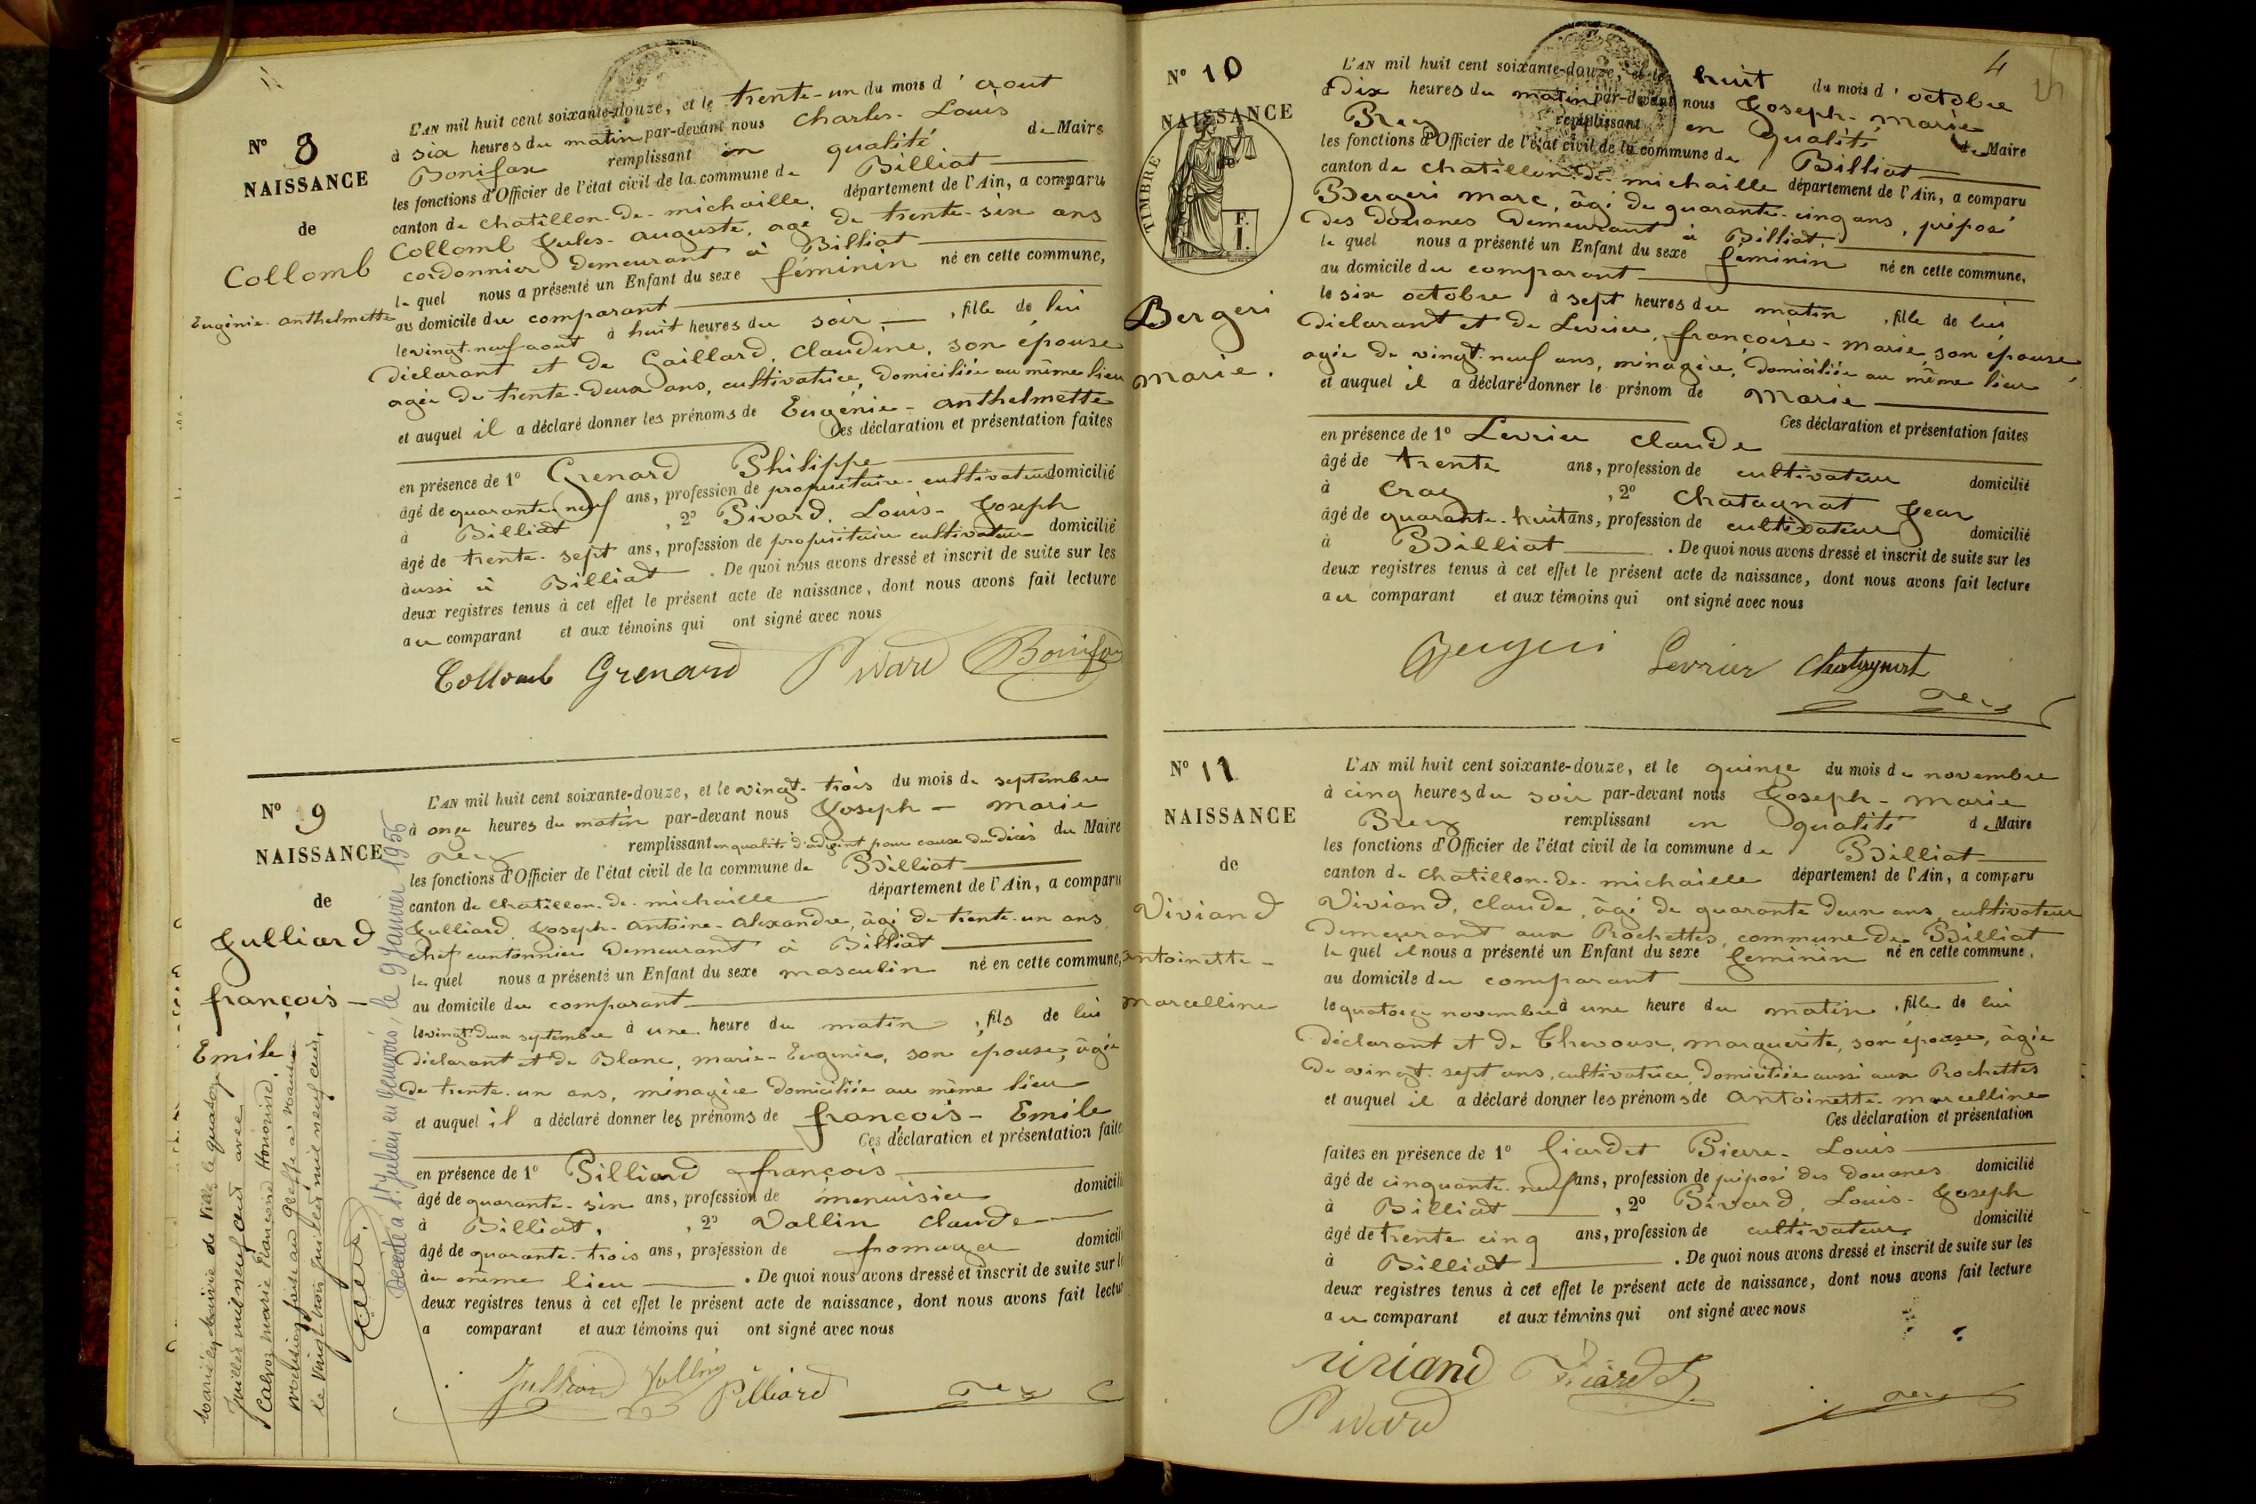 N° 8
NAISSANCE
de
Collomb
Eugénie-anthelmette
L'AN mil huit cent soixante-douze, et le trente-un du mois d'aout
à six heures du matin par-devant nous Charles-Louis
Bonifax remplissant en qualité de Maire
les fonctions d'Officier de l'état civil de la commune de Billiat
canton de chatillon-de-michaille, département de l'Ain, a comparu
Collomb Jules-auguste, agé de trente-six ans
cordonnier demeurant à Billiat
lequel nous a présenté un Enfant du sexe féminin né en cette commune,
au domicile du comparant
le vingt-neuf aout à huit heures du soir, fille de lui
déclarant et de Gaillard, Claudine, son épouse
agée de trente-deux ans, cultivatrice, domiciliée au même lieu
et auquel il a déclaré donner les prénoms de Eugénie-anthelmette
Ces déclaration et présentation faites
en présence de 1° Grenard Philippe
âgé de quarante neuf ans, profession de propriétaire-cultivateur domicilié
à Billiat, 2° Pivard, Louis-Joseph
âgé de trente-sept ans, profession de propriétaire cultivateur domicilié
aussi à Billiat. De quoi nous avons dressé et inscrit de suite sur les
deux registres tenus à cet effet le présent acte de naissance, dont nous avons fait lecture
au comparant et aux témoins qui ont signé avec nous
Collomb Grenard Pivard Bonifax
N° 9
NAISSANCE
de
Julliard
françois-
Emile.
L'AN mil huit cent soixante-douze, et le vingt-trois du mois de septembre
à onze heures du matin par-devant nous Joseph-marie
remplissant en qualité d'adjoint pour cause du décès du Maire
les fonctions d'Officier de l'état civil de la commune de Billiat
canton de chatillon-de-michaille département de l'Ain, a comparu
Julliard, Joseph-Antoine-Alexandre, âgé de trente-un ans
chef cantonnier demeurant à Billiat
lequel nous a présenté un Enfant du sexe masculin né en cette commune,
au domicile du comparant
le vingt-deux septembre à une heure du matin, fils de lui
déclarant et de Blanc, marie-Eugénie, son épouse, âgée
de trente-un ans, ménagère domiciliée au même lieu
et auquel il a déclaré donner les prénoms de françois-Emile
Ces déclaration et présentation faites
en présence de 1° Pilliard françois
âgé de quarante-six ans, profession de menuisier domicilié
à Billiat, 2° Vallin Claude
âgé de quarante-trois ans, profession de fromager domicilié
au même lieu. De quoi nous avons dressé et inscrit de suite sur les
deux registres tenus à cet effet le présent acte de naissance, dont nous avons fait lecture
a comparant et aux témoins qui ont signé avec nous
Julliard Vallin Pilliard
le quatorze
Juillet mil neuf cent avec
marie Françoise Honorine.
le vingt-trois juillet mil neuf cent.
Décédé à St Julien en Genevois, le 9 Janvier 1956
4
N° 10
NAISSANCE
de
TIMBRE
F.
I.
Bergeri
Marie.
L'AN mil huit cent soixante-douze, et le huit du mois d'octobre
à Dix heures du matin par-devant nous Joseph-marie
remplissant en qualité de Maire
les fonctions d'Officier de l'état civil de la commune de Billiat
canton de chatillon-de-michaille département de l'Ain, a comparu
Bergeri marc, âgé de quarante-cinq ans, préposé
des douanes demeurant à Billiat
lequel nous a présenté un Enfant du sexe féminin né en cette commune,
au domicile du comparant
le six octobre à sept heures du matin, fille de lui
déclarant et de Levrier, françoise-marie, son épouse
agée de vingt-neuf ans, ménagère, domiciliée au même lieu
et auquel il a déclaré donner le prénom de Marie
Ces déclaration et présentation faites
en présence de 1° Levrier Claude
âgé de trente ans, profession de cultivateur domicilié
à Craz, 2° Chatagnat Jean
âgé de quarante-huit ans, profession de cultivateur domicilié
à Billiat. De quoi nous avons dressé et inscrit de suite sur les
deux registres tenus à cet effet le présent acte de naissance, dont nous avons fait lecture
au comparant et aux témoins qui ont signé avec nous
Bergeri Levrier Chatagnat
N° 11
NAISSANCE
de
Viviand
antoinette-
marcelline
L'AN mil huit cent soixante-douze, et le quinze du mois de novembre
à cinq heures du soir par-devant nous Joseph-marie
remplissant en qualité de Maire
les fonctions d'Officier de l'état civil de la commune de Billiat
canton de chatillon-de-michaille département de l'Ain, a comparu
Viviand, Claude, âgé de quarante deux ans, cultivateur
demeurant aux Rochettes, commune de Billiat
lequel il nous a présenté un Enfant du sexe féminin né en cette commune,
au domicile du comparant
le quatorze novembre à une heure du matin, fille de lui
déclarant et de Thevoux, marguerite, son épouse, âgée
de vingt-sept ans, cultivatrice, domiciliée aussi aux Rochettes
et auquel il a déclaré donner les prénoms de antoinette-marcelline
Ces déclaration et présentation
faites en présence de 1° Pierre-Louis
âgé de cinquante-neuf ans, profession de préposé des douanes domicilié
à Billiat, 2° Pivard, Louis-Joseph
âgé de trente cinq ans, profession de cultivateur domicilié
à Billiat. De quoi nous avons dressé et inscrit de suite sur les
deux registres tenus à cet effet le présent acte de naissance, dont nous avons fait lecture
au comparant et aux témoins qui ont signé avec nous
viviand
Pivard